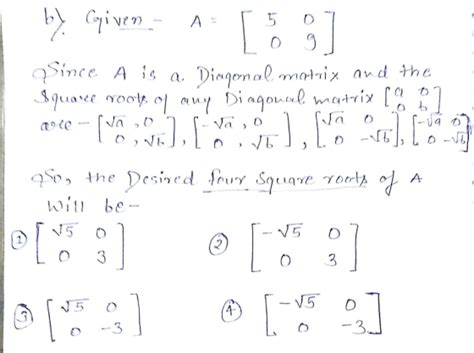 b) Given - A = [5 0; 0 9]
Since A is a Diagonal matrix and the
Square roots of any Diagonal matrix [a 0; 0 b]
are - [√a, 0; 0, √b], [-√a, 0; 0, √b], [√a 0; 0 -√b], [-√a 0; 0 -√b]
So, the Desired four square roots of A
will be -
① [√5 0; 0 3] ② [-√5 0; 0 3]
③ [√5 0; 0 -3] ④ [-√5 0; 0 -3]